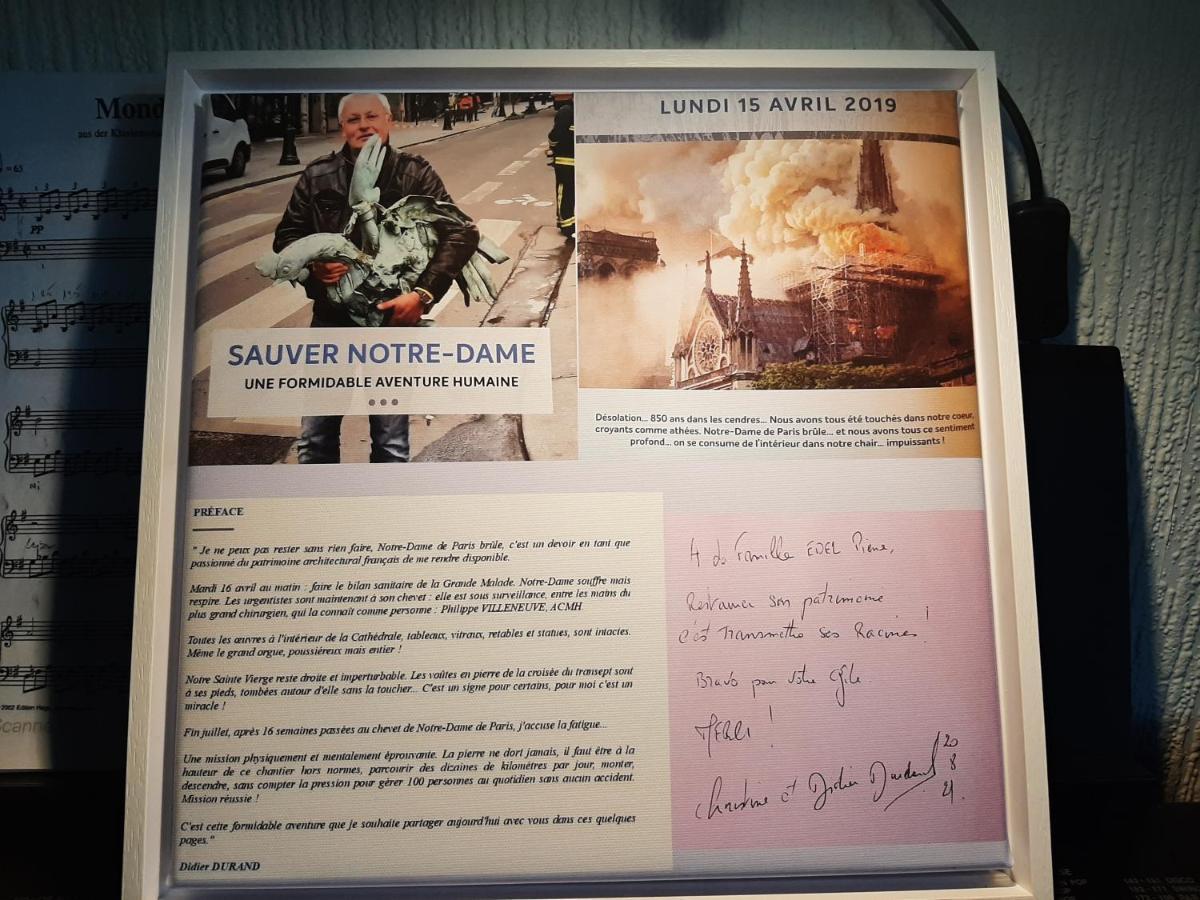 Mond
aus der Klaviersona
= 65
PP
LUNDI 15 AVRIL 2019
SAUVER NOTRE-DAME
UNE FORMIDABLE AVENTURE HUMAINE
Désolation... 850 ans dans les cendres... Nous avons tous été touchés dans notre coeur,
croyants comme athées. Notre-Dame de Paris brûle... et nous avons tous ce sentiment
profond... on se consume de l'intérieur dans notre chair... impuissants !
PRÉFACE
" Je ne peux pas rester sans rien faire, Notre-Dame de Paris brûle, c'est un devoir en tant que
passionné du patrimoine architectural français de me rendre disponible.
Mardi 16 avril au matin : faire le bilan sanitaire de la Grande Malade. Notre-Dame souffre mais
respire. Les urgentistes sont maintenant à son chevet : elle est sous surveillance, entre les mains du
plus grand chirurgien, qui la connaît comme personne : Philippe VILLENEUVE, ACMH.
Toutes les œuvres à l'intérieur de la Cathédrale, tableaux, vitraux, retables et statues, sont intactes.
Même le grand orgue, poussiéreux mais entier !
Notre Sainte Vierge reste droite et imperturbable. Les voûtes en pierre de la croisée du transept sont
à ses pieds, tombées autour d'elle sans la toucher... C'est un signe pour certains, pour moi c'est un
miracle !
Fin juillet, après 16 semaines passées au chevet de Notre-Dame de Paris, j'accuse la fatigue...
Une mission physiquement et mentalement éprouvante. La pierre ne dort jamais, il faut être à la
hauteur de ce chantier hors normes, parcourir des dizaines de kilomètres par jour, monter,
descendre, sans compter la pression pour gérer 100 personnes au quotidien sans aucun accident.
Mission réussie !
C'est cette formidable aventure que je souhaite partager aujourd'hui avec vous dans ces quelques
pages."
Didier DURAND
la Famille EDEL Pierre,
Restaurer son patrimoine
c'est transmettre ses Racines !
Bravo pour votre
MERCI !
et Didier Durand
20
8
21.
Scanne